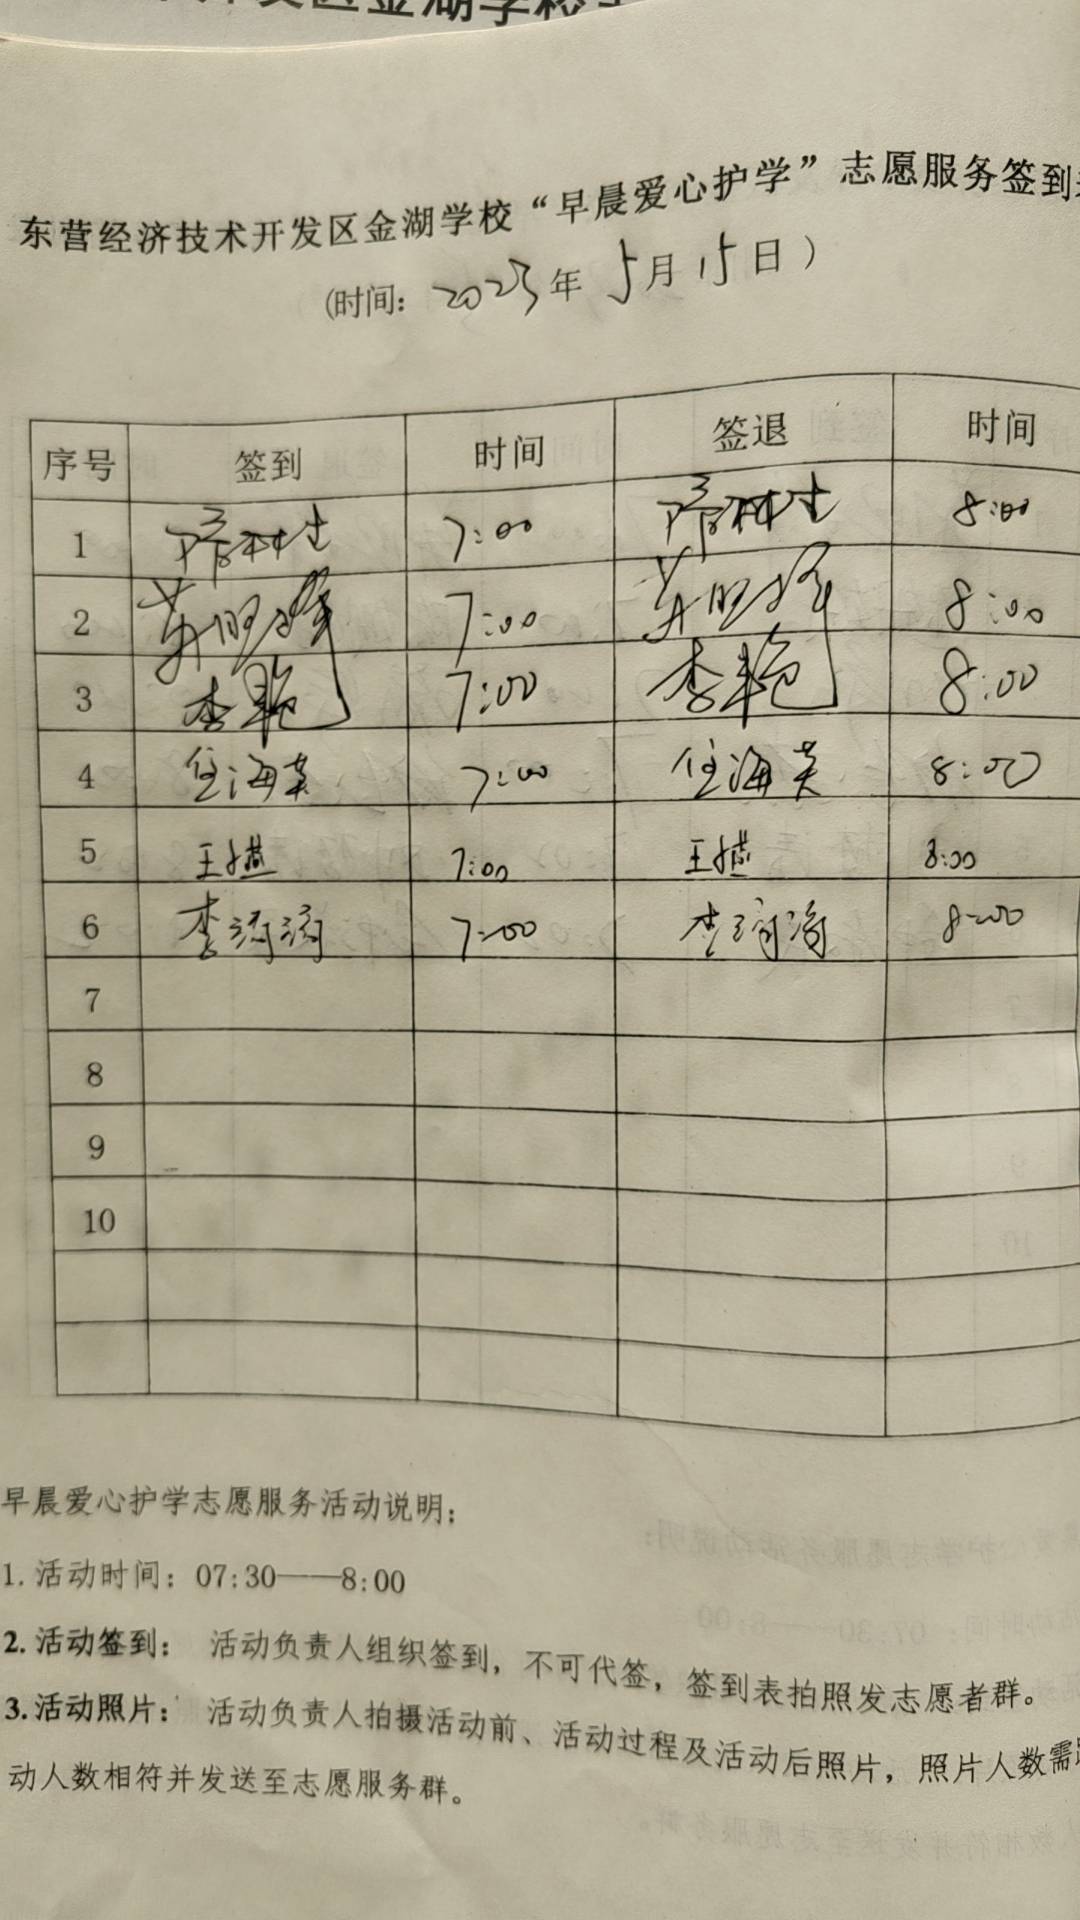 东营经济技术开发区金湖学校“早晨爱心护学”志愿服务签到
(时间: 2023年 5月 15日 )
序号 签到 时间 签退 时间
1 7:00 8:00
2 7:00 8:00
3 李艳 7:00 李艳 8:00
4 任海英 7:00 任海英 8:00
5 王燕 7:00 王燕 8:00
6 李 7:00 李 8:00
7
8
9
10
早晨爱心护学志愿服务活动说明:
1. 活动时间: 07:30——8:00
2. 活动签到: 活动负责人组织签到, 不可代签, 签到表拍照发志愿者群。
3. 活动照片: 活动负责人拍摄活动前、活动过程及活动后照片, 照片人数需
动人数相符并发送至志愿服务群。